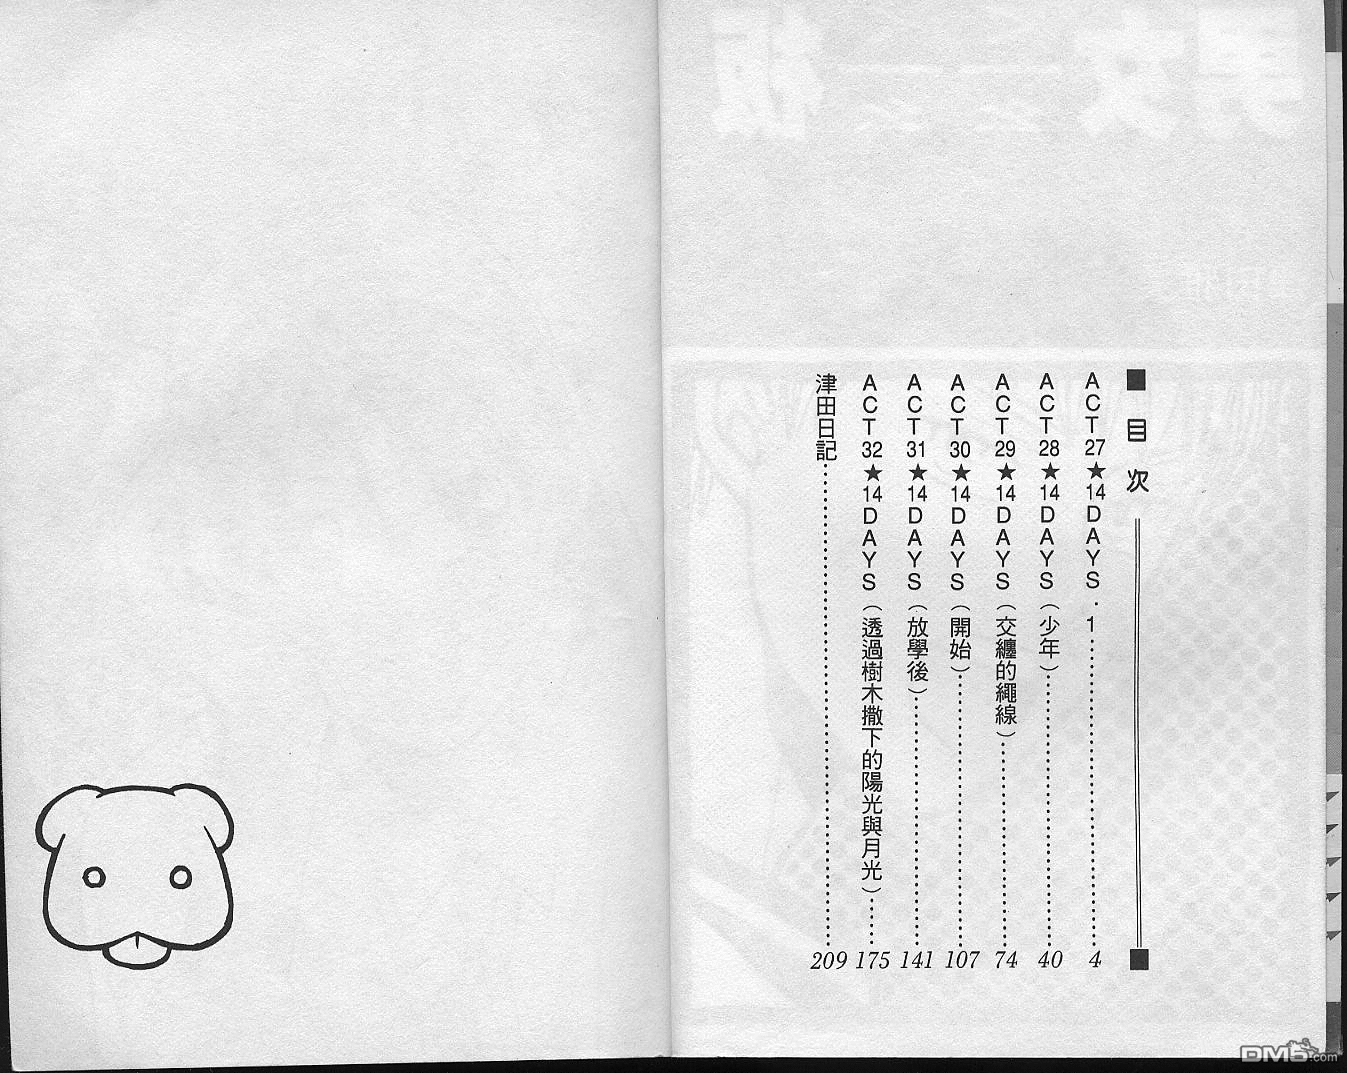 目次
ACT27★14DAYS・1……4
ACT28★14DAYS(少年)……40
ACT29★14DAYS(交纏的繩線)……74
ACT30★14DAYS(開始)……107
ACT31★14DAYS(放學後)……141
ACT32★14DAYS(透過樹木撒下的陽光與月光)……175
津田日記……209
DM5.com